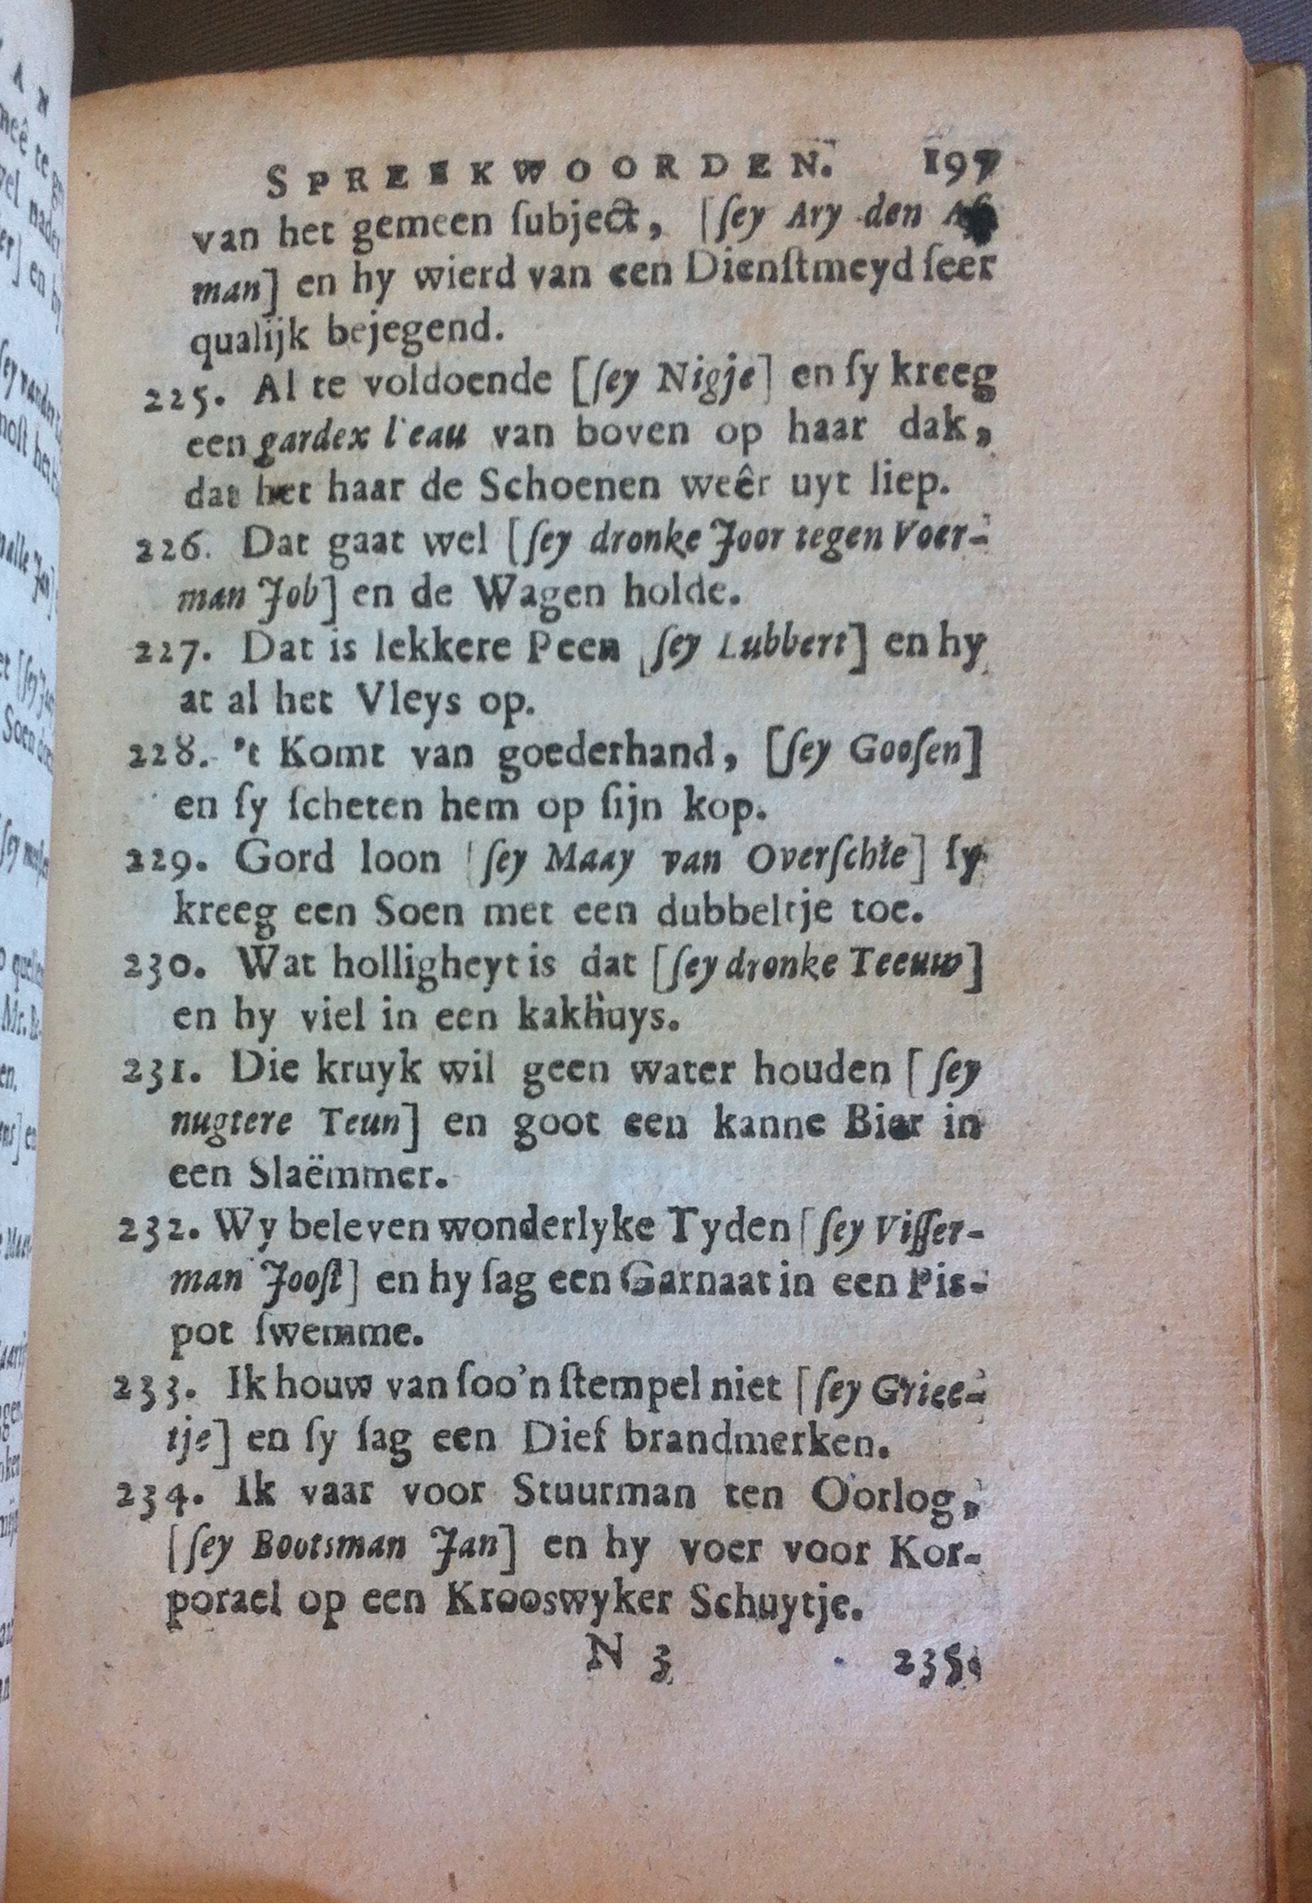 SPREEKWOORDEN. 197
van het gemeen ſubject, [ſey Ary den
man] en hy wierd van een Dienſtmeyd ſeer
qualijk bejegend.
225. Al te voldoende [ſey Nigje] en ſy kreeg
een gardex l'eau van boven op haar dak,
dat het haar de Schoenen weêr uyt liep.
226. Dat gaat wel [ſey dronke Joor tegen Voer-
man Job] en de Wagen holde.
227. Dat is lekkere Peen [ſey Lubbert] en hy
at al het Vleys op.
228. 't Komt van goederhand, [ſey Gooſen]
en ſy ſcheten hem op ſijn kop.
229. Gord loon [ſey Maay van Overſchie] ſy
kreeg een Soen met een dubbeltje toe.
230. Wat holligheyt is dat [ſey dronke Teeuw]
en hy viel in een kakhuys.
231. Die kruyk wil geen water houden [ſey
nugtere Teun] en goot een kanne Bier in
een Slaëmmer.
232. Wy beleven wonderlyke Tyden [ſey Viſſer-
man Jooſt] en hy ſag een Garnaat in een Pis-
pot ſwemme.
233. Ik houw van ſoo'n ſtempel niet [ſey Griee-
tje] en ſy ſag een Dief brandmerken.
234. Ik vaar voor Stuurman ten Oorlog,
[ſey Bootsman Jan] en hy voer voor Kor-
porael op een Krooswyker Schuytje.
N 3 235.